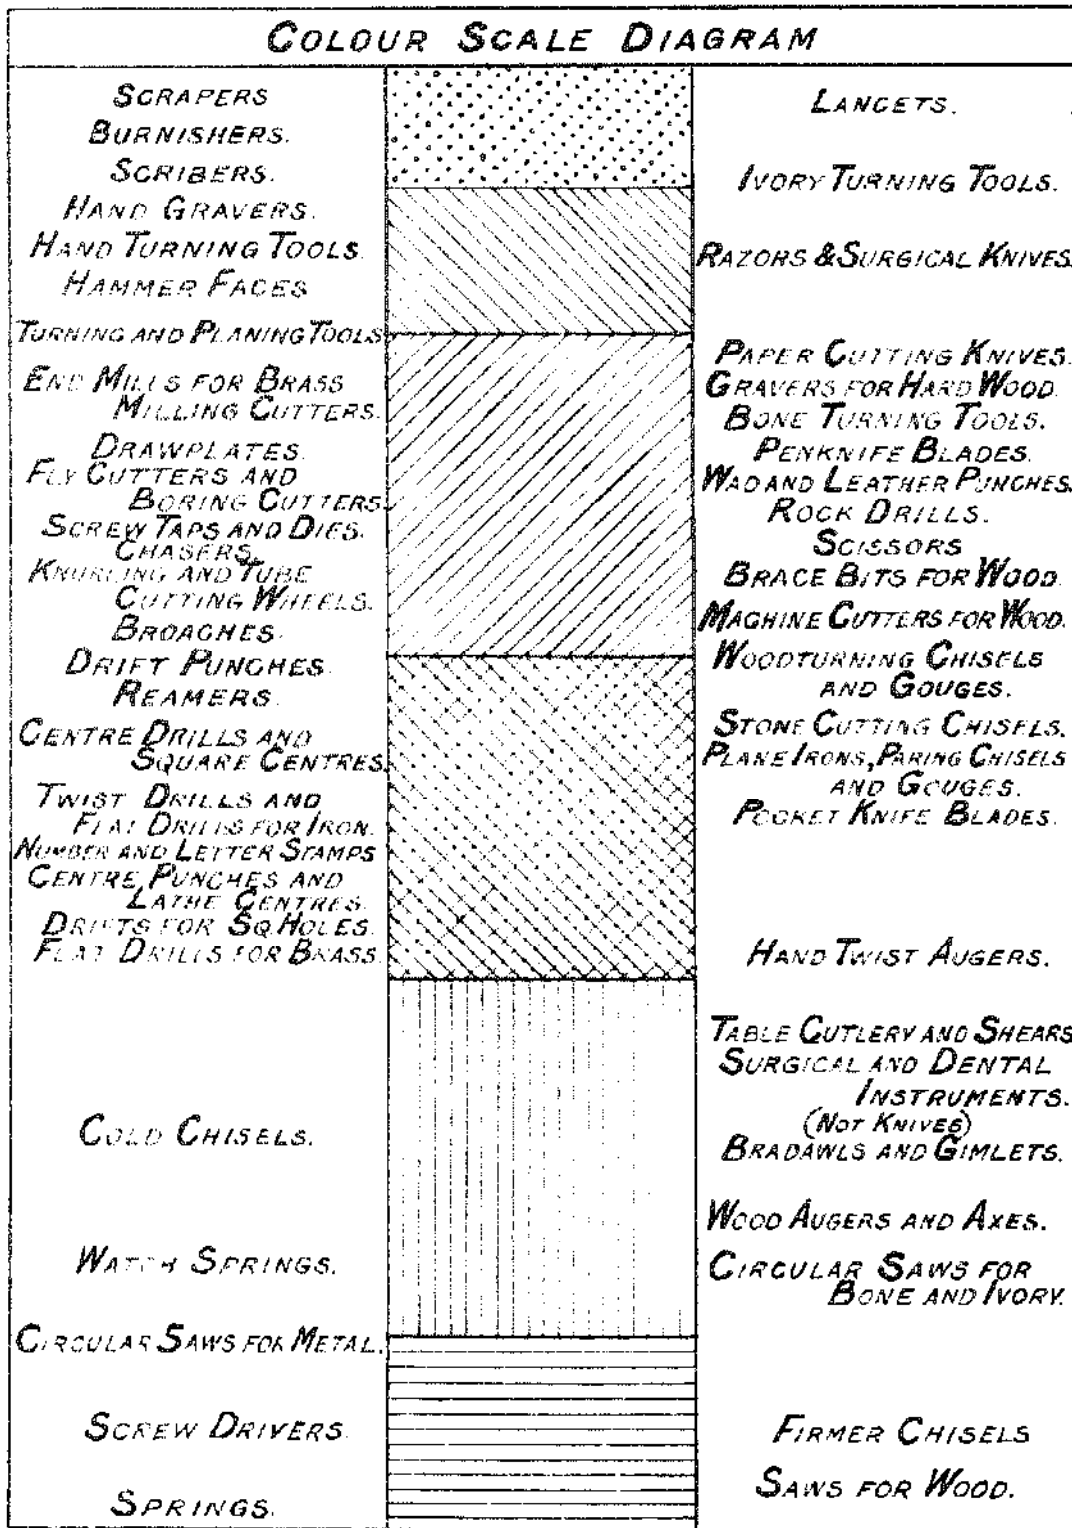 COLOUR SCALE DIAGRAM
SCRAPERS
BURNISHERS.
SCRIBERS.
HAND GRAVERS.
HAND TURNING TOOLS.
HAMMER FACES
TURNING AND PLANING TOOLS
END MILLS FOR BRASS
MILLING CUTTERS.
DRAWPLATES.
FLY CUTTERS AND
BORING CUTTERS
SCREW TAPS AND DIES.
CHASERS.
KNURLING AND TUBE
CUTTING WHEELS.
BROACHES.
DRIFT PUNCHES.
REAMERS.
CENTRE DRILLS AND
SQUARE CENTRES.
TWIST DRILLS AND
FLAT DRILLS FOR IRON.
NUMBER AND LETTER STAMPS
CENTRE PUNCHES AND
LATHE CENTRES.
DRIFTS FOR SQ. HOLES.
FLAT DRILLS FOR BRASS.
COLD CHISELS.
WATCH SPRINGS.
CIRCULAR SAWS FOR METAL.
SCREW DRIVERS.
SPRINGS.
LANCETS.
IVORY TURNING TOOLS.
RAZORS & SURGICAL KNIVES.
PAPER CUTTING KNIVES.
GRAVERS FOR HARD WOOD.
BONE TURNING TOOLS.
PENKNIFE BLADES.
WAD AND LEATHER PUNCHES.
ROCK DRILLS.
SCISSORS
BRACE BITS FOR WOOD.
MACHINE CUTTERS FOR WOOD.
WOODTURNING CHISELS
AND GOUGES.
STONE CUTTING CHISELS.
PLANE IRONS, PARING CHISELS
AND GOUGES.
POCKET KNIFE BLADES.
HAND TWIST AUGERS.
TABLE CUTLERY AND SHEARS
SURGICAL AND DENTAL
INSTRUMENTS.
(NOT KNIVES)
BRADAWLS AND GIMLETS.
WOOD AUGERS AND AXES.
CIRCULAR SAWS FOR
BONE AND IVORY.
FIRMER CHISELS
SAWS FOR WOOD.